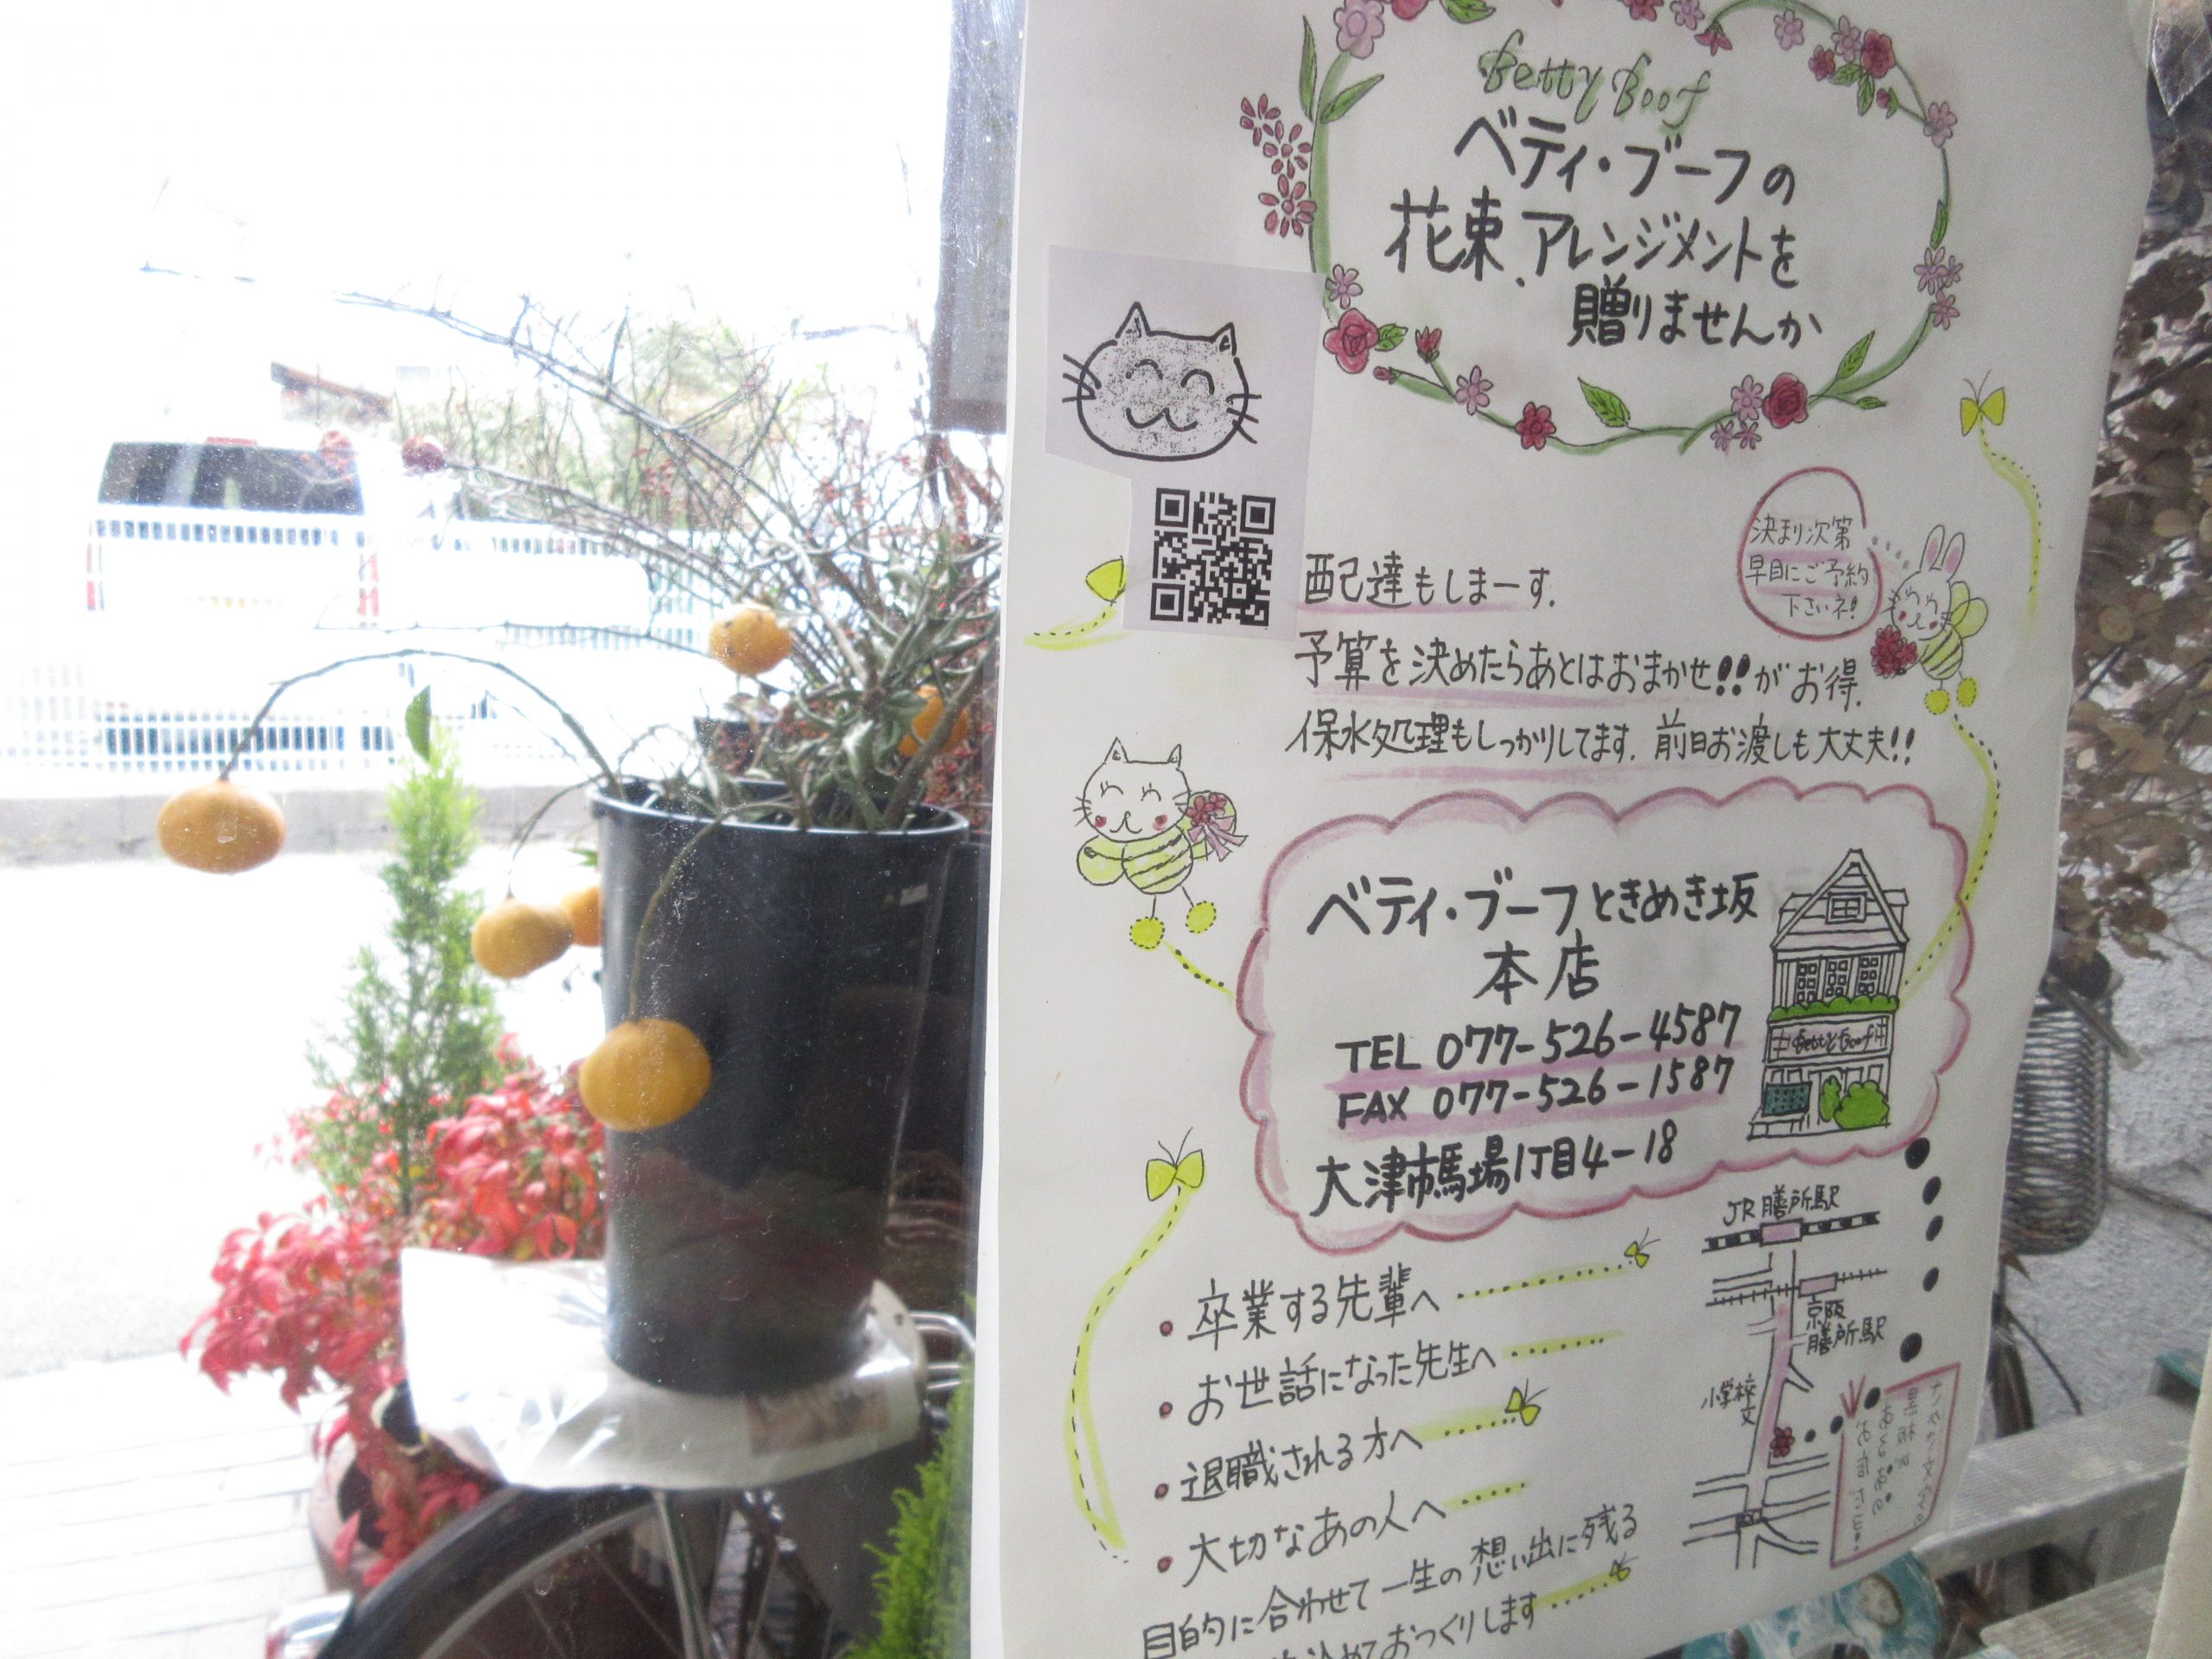 Betty Boof
ベティ・ブーフの
花束、アレンジメントを
贈りませんか
決まり次第
早目にご予約
下さいネ!
配達もしまーす.
予算を決めたらあとはおまかせ!!がお得.
保水処理もしっかりしてます. 前日お渡しも大丈夫!!
ベティ・ブーフときめき坂
本店
TEL 077-526-4587
FAX 077-526-1587
大津市馬場1丁目4-18
Betty Boof
JR膳所駅
京阪
膳所駅
小学校
・卒業する先輩へ
・お世話になった先生へ
・退職される方へ
・大切なあの人へ
目的に合わせて一生の想い出に残る
込めておつくりします